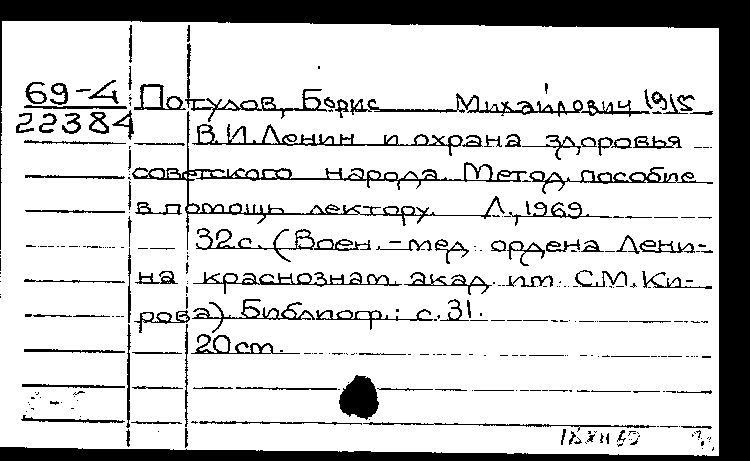 69-4 Потулов, Борис Михайлович 1915
22384 В.И.Ленин и охрана здоровья
советского народа. Метод. пособие
в помощь лектору. Л., 1969.
32с. (Воен.-мед. ордена Лени-
на краснознам. акад. им. С.М.Ки-
рова). Библиогр.: с.31.
20см.